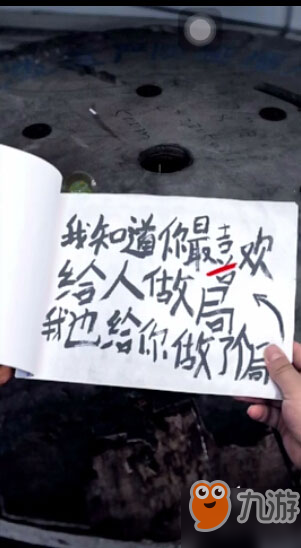 我知道你最喜欢
给人做局
我也给你做了個局
九游